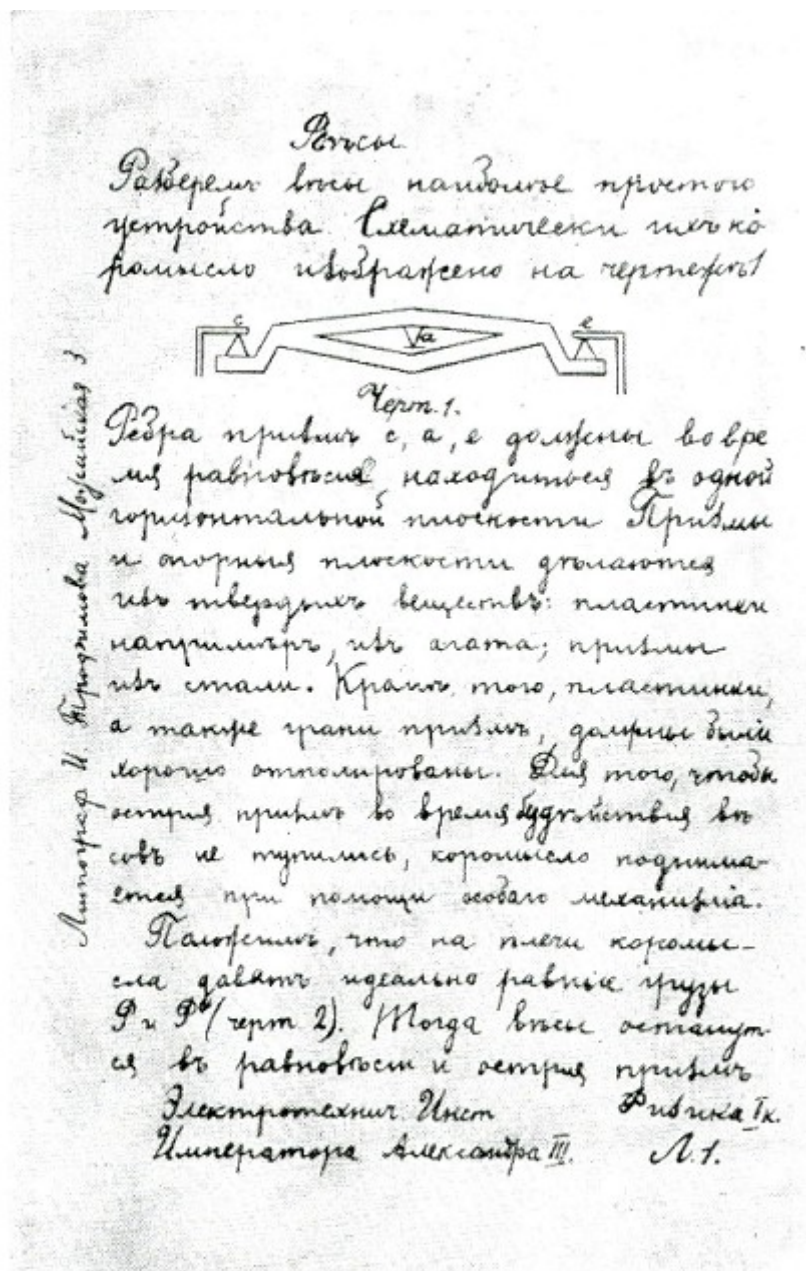 Вѣсы
Разберемъ вѣсы наиболѣе простого
устройства. Схематически ихъ ко
ромысло изображено на чертежѣ 1
c a e
Черт. 1.
Ребра призмъ c, a, e должны во вре
мя равновѣсія находиться въ одной
горизонтальной плоскости Призмы
и опорныя плоскости дѣлаются
изъ твердыхъ веществъ: пластинки
напримѣръ, изъ агата; призмы
изъ стали. Кромѣ того, пластинки,
а также грани призмъ, должны быть
хорошо отполированы. Для того, чтобы
острія призмъ во время бездѣйствія вѣ
совъ не тупились, коромысло поднима-
ется при помощи особаго механизма.
Положимъ, что на плечи коромы-
сла давятъ идеально равные грузы
P и P (черт. 2). Тогда вѣсы останут-
ся въ равновѣсіи и острія призмъ
Электротехнич. Инст Физика I к.
Императора Александра III. Л. 1.
Литограф И. Трофимова Можайская 3